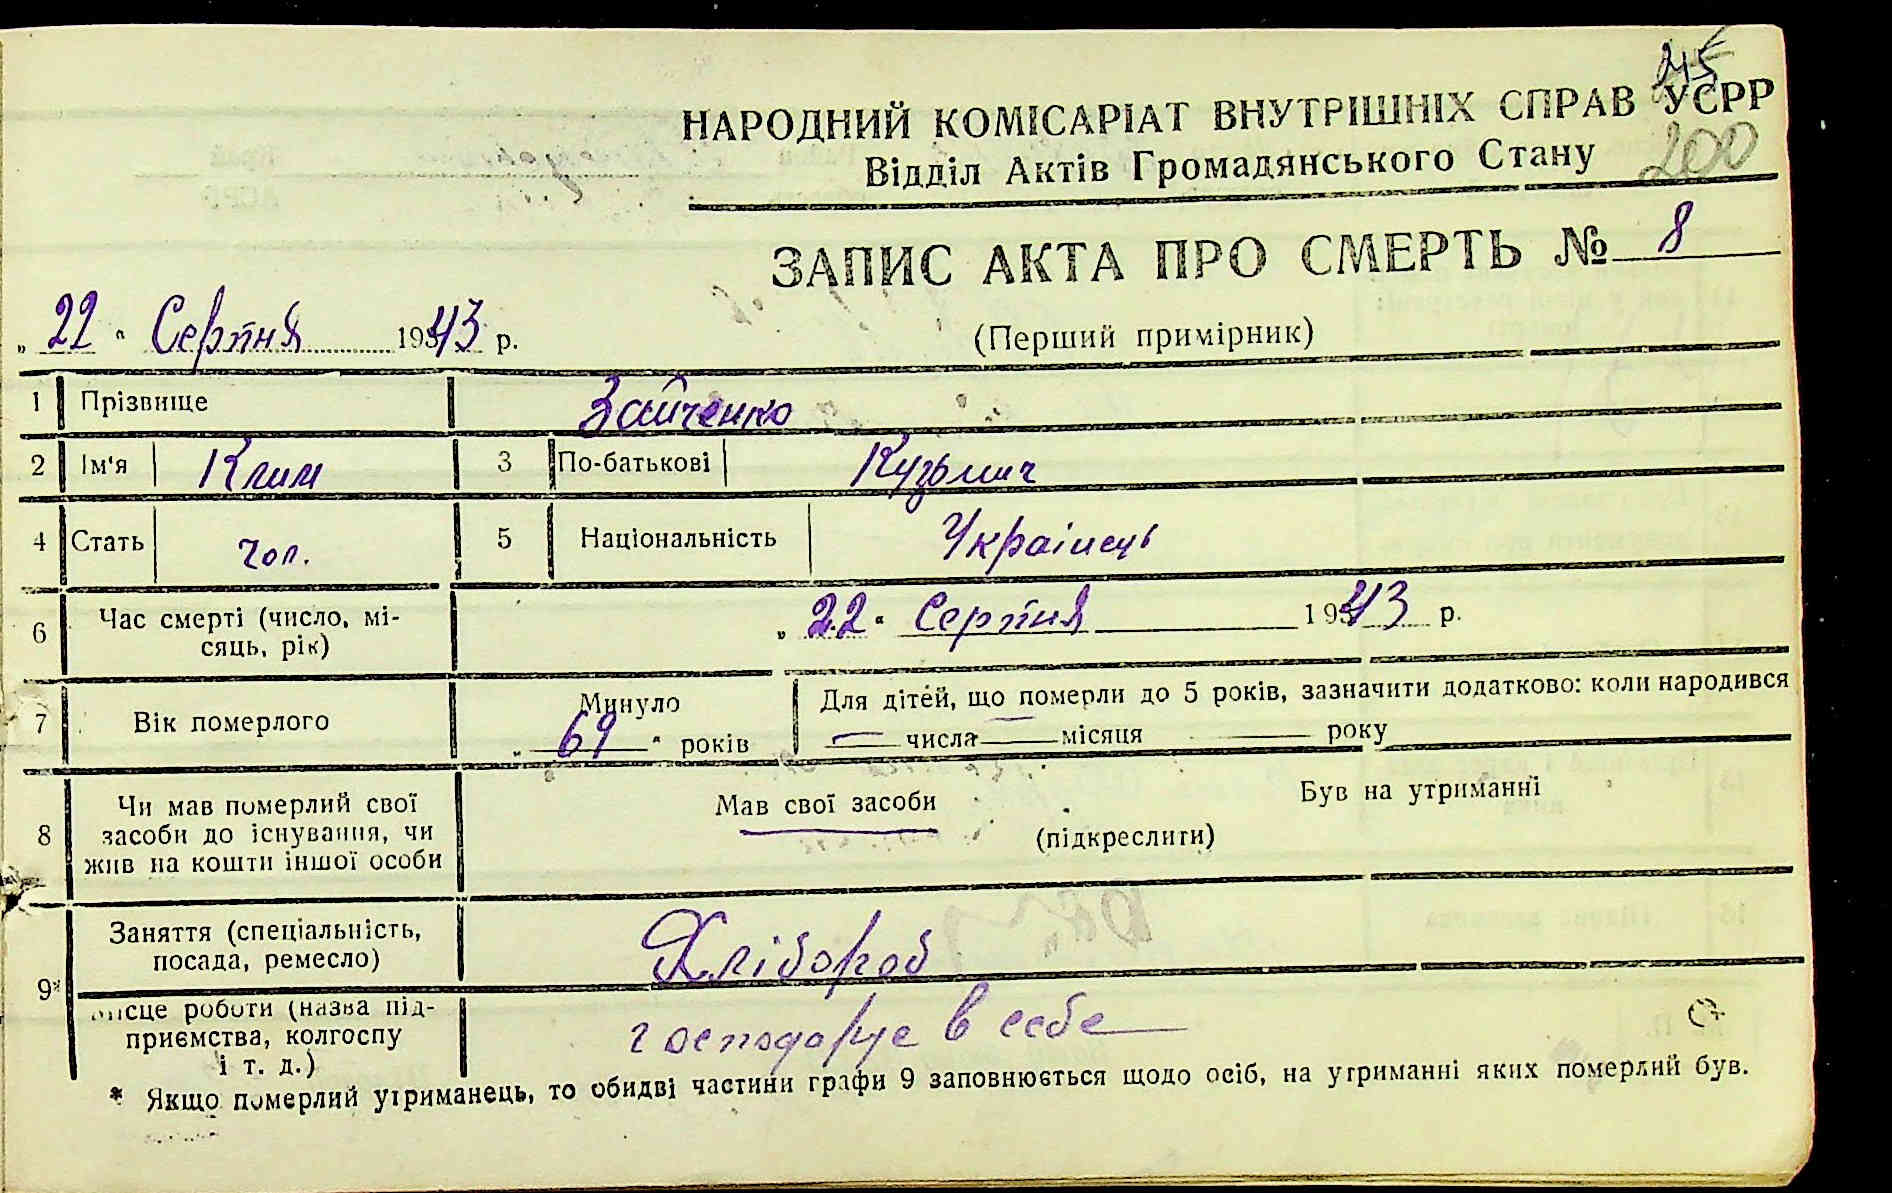 245
НАРОДНИЙ КОМІСАРІАТ ВНУТРІШНІХ СПРАВ УСРР
Відділ Актів Громадянського Стану 200
ЗАПИС АКТА ПРО СМЕРТЬ № 8
„ 22 “ Серпня 1943 р.
(Перший примірник)
1 Прізвище Зайченко
2 Ім'я Клим 3 По-батькові Кузьмич
4 Стать чол. 5 Національність Українець
6 Час смерті (число, мі-
сяць, рік)
„ 22 “ Серпня 1943 р.
7 Вік померлого
Минуло
„ 69 “ років
Для дітей, що померли до 5 років, зазначити додатково: коли народився
— числа — місяця — року
8 Чи мав померлий свої
засоби до існування, чи
жив на кошти іншої особи
Мав свої засоби Був на утриманні
(підкреслити)
9* Заняття (спеціальність,
посада, ремесло)
Хлібороб
місце роботи (назва під-
приємства, колгоспу
і т. д.)
господарює в себе
* Якщо померлий утриманець, то обидві частини графи 9 заповнюється щодо осіб, на утриманні яких померлий був.